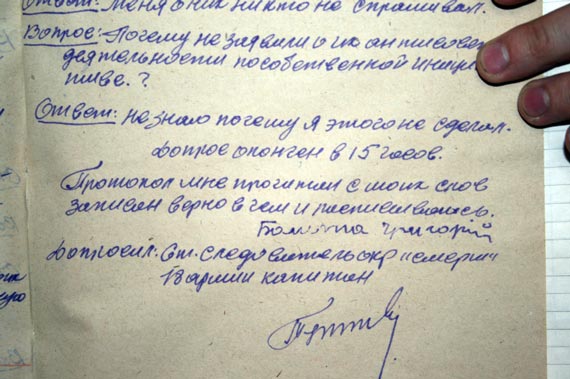 Ответ: Меня о них никто не спрашивал.
Вопрос: Почему не заявили о их антисовет
деятельности по собственной иници
тиве.?
Ответ: не знаю почему я этого не сделал.
Допрос окончен в 15 часов.
Протокол мне прочитан с моих слов
записан верно в чем и расписываюсь.
Григорий
Допросил: Ст. следователь окр "смерш"
армии капитан